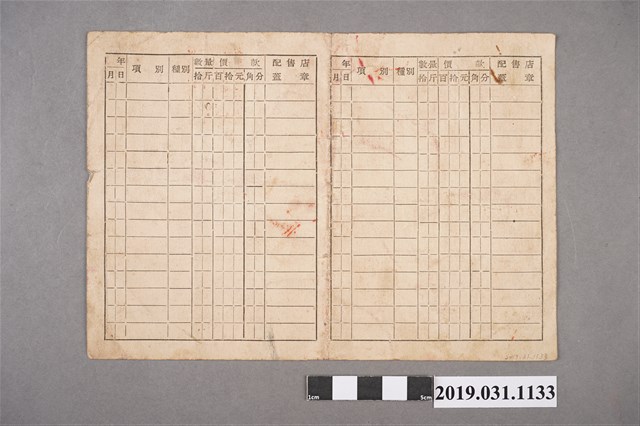 年 項別 種別 數量 價款 配售店
月 日 拾 斤 百 拾 元 角 分 蓋章
年 項別 種別 數量 價款 配售店
月 日 拾 斤 百 拾 元 角 分 蓋章
1cm 5cm
2019.031.1133